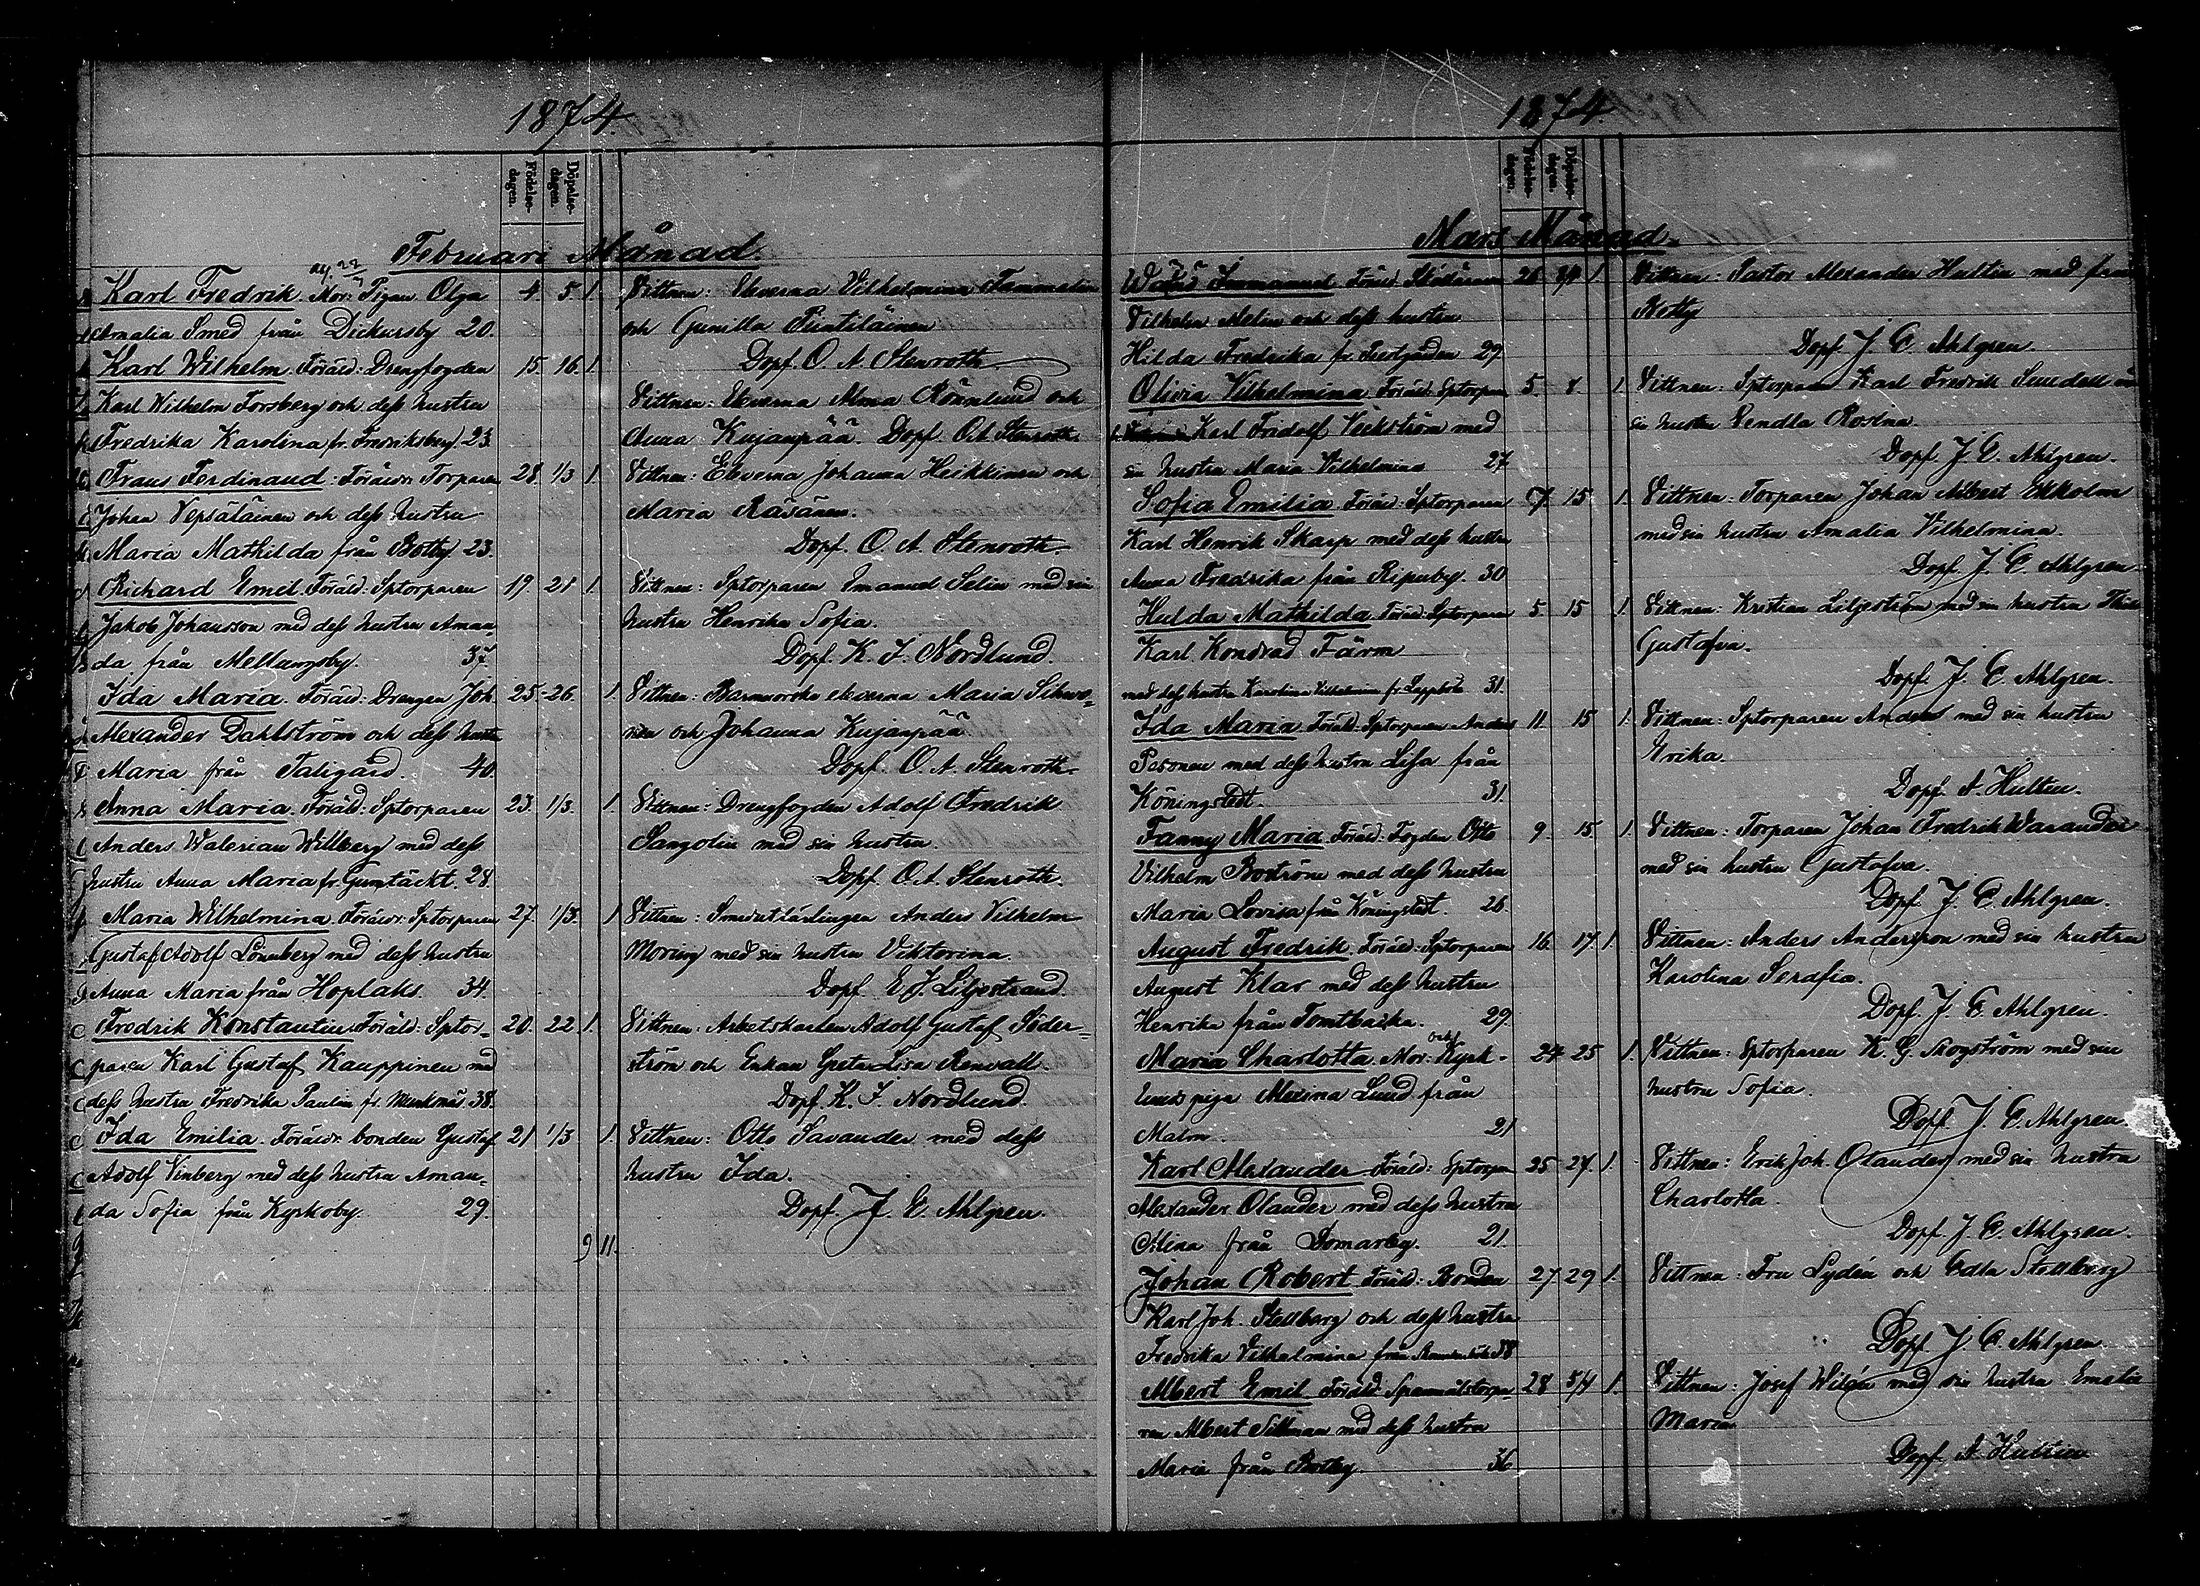 1874
Födelse-dagen.
Döpelse-dagen.
Februari Månad.
Karl Fredrik. Mor: Pigan Olga 4 5 1 Vittnen: Ekverna Vilhelmina Tammelin
Amalia Smed från Dickursby 20. och Gunilla
Dopf. O. A. Stenroth
Karl Wilhelm. Föräld: Drengfogden 15. 16. 1.
Karl Wilhelm Forsberg och dess hustru Vittnen: Ekverna Alma Rönnlund och
Fredrika Karolina fr. Fredriksberg 23. Anna Kujanpää. Dopf. O. A. Stenroth.
Frans Ferdinand: Föräldr: Torparen 28. 1/3 1. Vittnen: Ekverna Johanna Heikkinen och
Johan Vepsäläinen och dess hustru Maria Räsänen.
Maria Mathilda från Botby 23. Dopf. O. A. Stenroth.
Richard Emil. Föräld: Sptorparen 19. 21 1. Vittnen: Sptorparen Emanuel Selin med sin
Jakob Johansson med dess hustru Aman- hustru Henrika Sofia.
da från Mellungsby. 37. Dopf. K. J. Nordlund.
Ida Maria. Föräld: Drengen Joh. 25. 26. 1. Vittnen: Barnmorske ekverna Maria
Alexander Dahlström och dess hustru nen och Johanna Kujanpää
Maria från Taligård. 40. Dopf. O. A. Stenroth.
Anna Maria. Föräld: Sptorparen 23. 1/3. 1. Vittnen: Drengfogden Adolf Fredrik
Anders Walerian Willberg med dess Sangolin med sin hustru
hustru Anna Maria fr. Gumtäckt. 28. Dopf. O. A. Stenroth.
Maria Wilhelmina. Föräldr: Sptorparen 27. 1/3. 1 Vittnen: Smedslärlingen Anders Vilhelm
Gustaf Adolf Lönnberg med dess hustru Moring med sin hustru Viktorina.
Anna Maria från Hoplaks. 34. Dopf. E. J. Liljestrand.
Fredrik Konstantin Föräld: Sptor- 20. 22 1. Vittnen: Arbetskarlen Adolf Gustaf Söder-
paren Karl Gustaf Kauppinen med ström och Enkan Greta Lisa Renvall.
dess hustru Fredrika Paulin fr. Munksnäs 38. Dopf. K. J. Nordlund.
Ida Emilia. Föräldr. bonden Gustaf 21 1/3 1. Vittnen: Otto Savander med dess
Adolf Vinberg med dess hustru Aman- hustru Ida.
da Sofia från Kyrkoby. 29. Dopf. J. E. Ahlgren.
9 11.
1874.
Födelse-dagen.
Döpelse-dagen.
Mars Månad.
Immanuel Föräld: 26 1. Vittnen: Pastor Alexander Hultin med fru
Vilhelm Melin och dess hustru Ketty
Hilda Fredrika fr. Prestgården 29. Dopf. J. E. Ahlgren.
Olivia Vilhelmina. Föräld: Sptorpar 5. 8 1. Vittnen: Sptorparen Karl Fredrik Sundell med
Karl Fridolf Veckström med sin hustru Vendla Rosina
sin hustru Maria Vilhelmina 27 Dopf. J. E. Ahlgren.
Sofia Emilia. Föräld: Sptorparen 7. 15 1. Vittnen: Torparen Johan Albert Ekholm
Karl Henrik Skarp med dess hustru med sin hustru Amalia Vilhelmina.
Anna Fredrika från Ripuby. 30 Dopf. J. E. Ahlgren
Hulda Mathilda. Föräld: Sptorparen 5 15 1. Vittnen: Kristian Liljeström med sin hustru
Karl Kondrad Färm Gustafva.
med dess hustru Karolina Vilhelmina fr. Lappböle 31. Dopf. J. E. Ahlgren.
Ida Maria Föräld: Sptorparen Anders 11 15 1. Vittnen: Sptorparen Anders med sin hustru
Pesonen med dess hustru Lisa från Erika.
Köningstedt. 31. Dopf. A. Hultin.
Fanny Maria. Föräld: Fogden Otto 9. 15 1. Vittnen: Torparen Johan Fredrik Warander
Vilhelm Boström med dess hustru med sin hustru Gustafva.
Maria Lovisa från Köningstedt. 26. Dopf. J. E. Ahlgren.
August Fredrik. Föräld: Sptorparen 16. 17. 1. Vittnen: Anders Andersson med sin hustru
August Klar med dess hustru Karolina Serafia.
Henrika från Tomtbacka. 29. Dopf. J. E. Ahlgren.
Maria Charlotta. Mor: Kyrk- 24 25 1. Vittnen: Sptorparen K. G. Skogström med sin
piga Maxina Lund från hustru Sofia.
Malm. 21 Dopf. J. E. Ahlgren.
Karl Alexander Föräld: Sptorpar 25 27. 1. Vittnen: Erik Joh. Olander med sin hustru
Alexander Olander med dess hustru Charlotta.
Mina från Domarby. 21. Dopf. J. E. Ahlgren.
Johan Robert Föräld: Bonden 27 29 1. Vittnen: Fru Lydén och Edla Stellberg
Karl Joh. Stellberg och dess hustru
Fredrika Vilhelmina från 38 Dopf. J. E. Ahlgren.
Albert Emil Föräld: Spannmålstorpa- 28 5/4 1. Vittnen: Josef Wilén med sin hustru Emalia
ren Albert Sillman med dess hustru Maria
Maria från Botby. 36 Dopf. A. Hultin